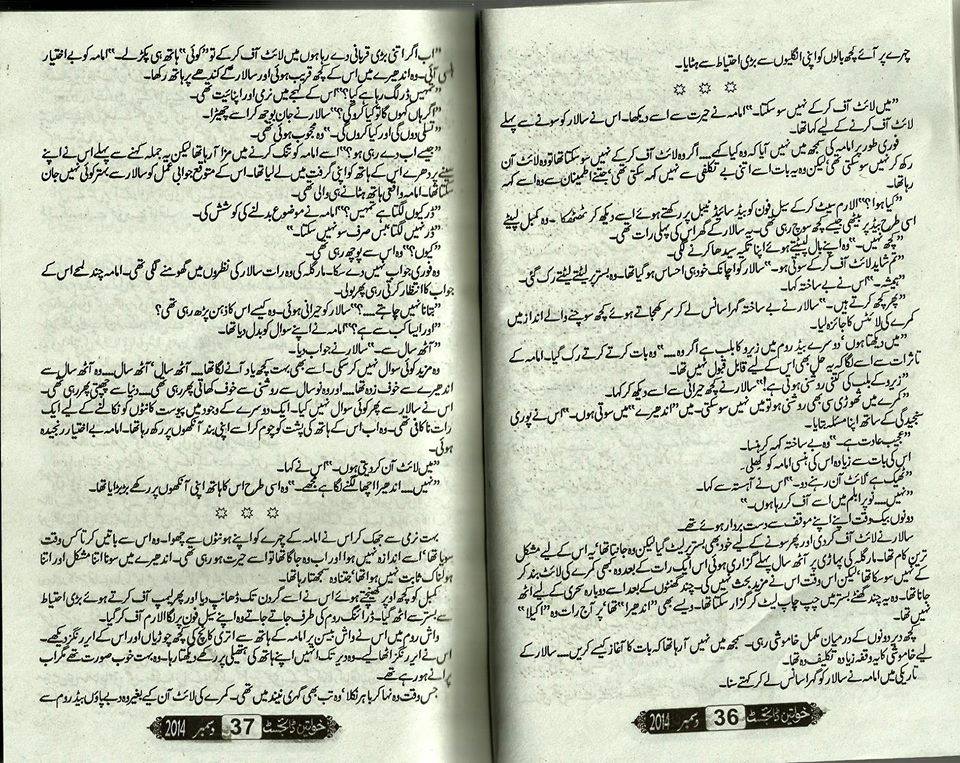 چہرے پر آئے کچھ بالوں کو اپنی انگلیوں سے بڑی احتیاط سے ہٹایا۔
☼ ☼ ☼
”میں لائٹ آف کر کے نہیں سو سکتا۔“ امامہ نے حیرت سے اسے دیکھا۔ اس نے سالار کو سونے سے پہلے
لائٹ آف کرنے کے لیے کہا تھا۔
فوری طور پر امامہ کی سمجھ میں نہیں آیا کہ وہ کیا کہے.... اگر وہ لائٹ آف کر کے نہیں سو سکتا تھا تو وہ لائٹ آن
رکھ کر نہیں سو سکتی تھی، لیکن وہ یہ بات اسے اتنی بے تکلفی سے نہیں کہہ سکتی تھی، جتنے اطمینان سے وہ اسے کہہ
رہا تھا۔
”کیا ہوا؟“ الارم سیٹ کر کے سیل فون کو بیڈ سائیڈ ٹیبل پر رکھتے ہوئے اسے دیکھ کر ٹھٹھکا۔ وہ کمبل لپیٹے
اسی طرح بیڈ پر بیٹھی جیسے کچھ سوچ رہی تھی۔ یہ سالار کے گھر اس کی پہلی رات تھی۔
”کچھ نہیں۔“ وہ اپنے بال لپیٹتے ہوئے اپنا تکیہ سیدھا کرنے لگی۔
”تم شاید لائٹ آف کر کے سوتی ہو۔“ سالار کو اچانک خود ہی احساس ہو گیا تھا۔ وہ بستر پر لیٹتے لیٹتے رک گئی۔
”ہمیشہ۔“ اس نے بے ساختہ کہا۔
”پھر کچھ کرتے ہیں۔“ سالار نے بے ساختہ گہرا سانس لے کر سر کھجاتے ہوئے کچھ سوچنے والے انداز میں
کمرے کی لائٹس کا جائزہ لیا۔
”میں دیکھتا ہوں، دوسرے بیڈ روم میں زیرو کا بلب ہے اگر وہ....“ وہ بات کرتے کرتے رک گیا۔ امامہ کے
تاثرات سے اسے لگا کہ یہ حل بھی اس کے لیے قابل قبول نہیں تھا۔
”زیرو کے بلب کی کتنی روشنی ہوتی ہے!“ سالار نے کچھ حیرانی سے اسے دیکھ کر کہا۔
”کمرے میں تھوڑی سی بھی روشنی ہو تو میں نہیں سو سکتی۔ میں ”اندھیرے“ میں سوتی ہوں۔“ اس نے پوری
سنجیدگی کے ساتھ اپنا مسئلہ بتایا۔
”عجیب عادت ہے۔“ وہ بے ساختہ کہہ کر ہنسا۔
اس کی بات سے زیادہ اس کی ہنسی امامہ کو کھلی۔
”ٹھیک ہے لائٹ آن رہنے دو۔“ اس نے آہستہ سے کہا۔
”نہیں.... نو پرابلم میں اسے آف کر رہا ہوں۔“
دونوں بیک وقت اپنے اپنے موقف سے دست بردار ہوئے تھے۔
سالار نے لائٹ آف کر دی اور پھر سونے کے لیے خود بھی بستر پر لیٹ گیا لیکن وہ جانتا تھا، یہ اس کے لیے مشکل
ترین کام تھا۔ مارگلہ کی پہاڑی پر آٹھ سال پہلے گزاری ہوئی اس ایک رات کے بعد وہ کبھی کمرے کی لائٹ بند کر
کے نہیں سو سکا تھا، لیکن اس وقت اس نے مزید بحث نہیں کی۔ چند گھنٹوں کے بعد اسے دوبارہ سحری کے لیے اٹھ
جانا تھا۔ وہ یہ چند گھنٹے بستر میں چپ چاپ لیٹ کر گزار سکتا تھا۔ ویسے بھی ”اندھیرا“ تھا، پر آج رات وہ ”اکیلا“
نہیں تھا۔
کچھ دیر دونوں کے درمیان مکمل خاموشی رہی۔ سمجھ میں نہیں آ رہا تھا کہ بات کا آغاز کیسے کریں.... سالار کے
لیے خاموشی کا یہ وقفہ زیادہ تکلیف دہ تھا۔
تاریکی میں امامہ نے سالار کو گہرا سانس لے کر کہتے سنا۔
خواتین ڈائجسٹ 36 دسمبر 2014
”اب اگر اتنی بڑی قربانی دے رہا ہوں میں لائٹ آف کر کے تو ”کوئی“ ہاتھ ہی پکڑ لے۔“ امامہ کو بے اختیار
ہنسی آئی۔ وہ اندھیرے میں اس کے کچھ قریب ہوئی اور سالار کے کندھے پر ہاتھ رکھا۔
”تمہیں ڈر لگ رہا ہے کیا؟“ اس کے لہجے میں نرمی اور اپنائیت تھی۔
”اگر ہاں کہوں گا تو کیا کرو گی؟“ سالار نے جان بوجھ کر اسے چھیڑا۔
”تسلی دوں گی اور کیا کروں گی۔“ وہ محجوب ہوئی تھی۔
”جیسے اب دے رہی ہو؟“ اسے امامہ کو تنگ کرنے میں مزا آ رہا تھا لیکن یہ جملہ کہنے سے پہلے اس نے اپنے
سینے پر دھرے اس کے ہاتھ کو اپنی گرفت میں لے لیا تھا۔ اس کے متوقع جوابی عمل کو سالار سے بہتر کوئی نہیں جان
سکتا تھا۔ امامہ واقعی ہاتھ ہٹانے ہی والی تھی۔
”ڈر کیوں لگتا ہے تمہیں؟“ امامہ نے موضوع بدلنے کی کوشش کی۔
”ڈر نہیں لگتا، بس صرف سو نہیں سکتا۔“
”کیوں؟“ وہ اس سے پوچھ رہی تھی۔
وہ فوری جواب نہیں دے سکا۔ مارگلہ کی وہ رات سالار کی نظروں میں گھومنے لگی تھی۔ امامہ چند لمحے اس کے
جواب کا انتظار کرتی رہی پھر بولی۔
”بتانا نہیں چاہتے....؟“ سالار کو حیرانی ہوئی۔ وہ کیسے اس کا ذہن پڑھ رہی تھی؟
”اور ایسا کب سے ہے؟“ امامہ نے اپنے سوال کو بدل دیا تھا۔
”آٹھ سال سے۔“ سالار نے جواب دیا۔
وہ مزید کوئی سوال نہیں کر سکی۔ اسے بھی بہت کچھ یاد آنے لگا تھا.... آٹھ سال، آٹھ سال.... وہ آٹھ سال سے
اندھیرے سے خوف زدہ تھا.... اور وہ نو سال سے روشنی سے خوف کھاتی پھر رہی تھی.... دنیا سے چھپتی پھر رہی تھی۔
اس نے سالار سے پھر کوئی سوال نہیں کیا۔ ایک دوسرے کے وجود میں پیوست کانٹوں کو نکالنے کے لیے ایک
رات ناکافی تھی۔ وہ اب اس کے ہاتھ کی پشت کو چوم کر اسے اپنی بند آنکھوں پر رکھ رہا تھا۔ امامہ بے اختیار رنجیدہ
ہوئی۔
”میں لائٹ آن کر دیتی ہوں۔“ اس نے کہا۔
”نہیں.... اندھیرا اچھا لگنے لگا ہے مجھے۔“ وہ اسی طرح اس کا ہاتھ اپنی آنکھوں پر رکھے بڑبڑایا تھا۔
☼ ☼ ☼
بہت نرمی سے جھک کر اس نے امامہ کے چہرے کو اپنے ہونٹوں سے چھوا۔ وہ اس سے باتیں کرتا کس وقت
سویا تھا، اسے اندازہ نہیں ہوا اور اب وہ جاگا تھا تو اسے حیرت ہو رہی تھی۔ اندھیرے میں سونا اتنا مشکل اور اتنا
ہولناک ثابت نہیں ہوا تھا، جتنا وہ سمجھتا رہا تھا۔
کمبل کو کچھ اوپر کھینچتے ہوئے اس نے اسے گردن تک ڈھانپ دیا اور پھر لیمپ آف کرتے ہوئے بڑی احتیاط
سے بستر سے اٹھ گیا۔ ڈرائنگ روم کی طرف جاتے جاتے وہ اپنے سیل فون پر لگا الارم آف کر گیا۔
واش روم میں اس نے واش بیسن پر امامہ کے ہاتھ سے اتری کانچ کی کچھ چوڑیاں اور اس کے ایر رنگز دیکھے۔
اس نے ایر رنگز اٹھا لیے۔ وہ دیر تک انہیں اپنے ہاتھ کی ہتھیلی پر رکھے دیکھتا رہا۔ وہ بہت خوب صورت تھے مگر اب
پرانے ہو رہے تھے۔
جس وقت وہ نہا کر باہر نکلا، وہ تب بھی گہری نیند میں تھی۔ کمرے کی لائٹ آن کیے بغیر وہ دبے پاؤں بیڈ روم سے
خواتین ڈائجسٹ 37 دسمبر 2014